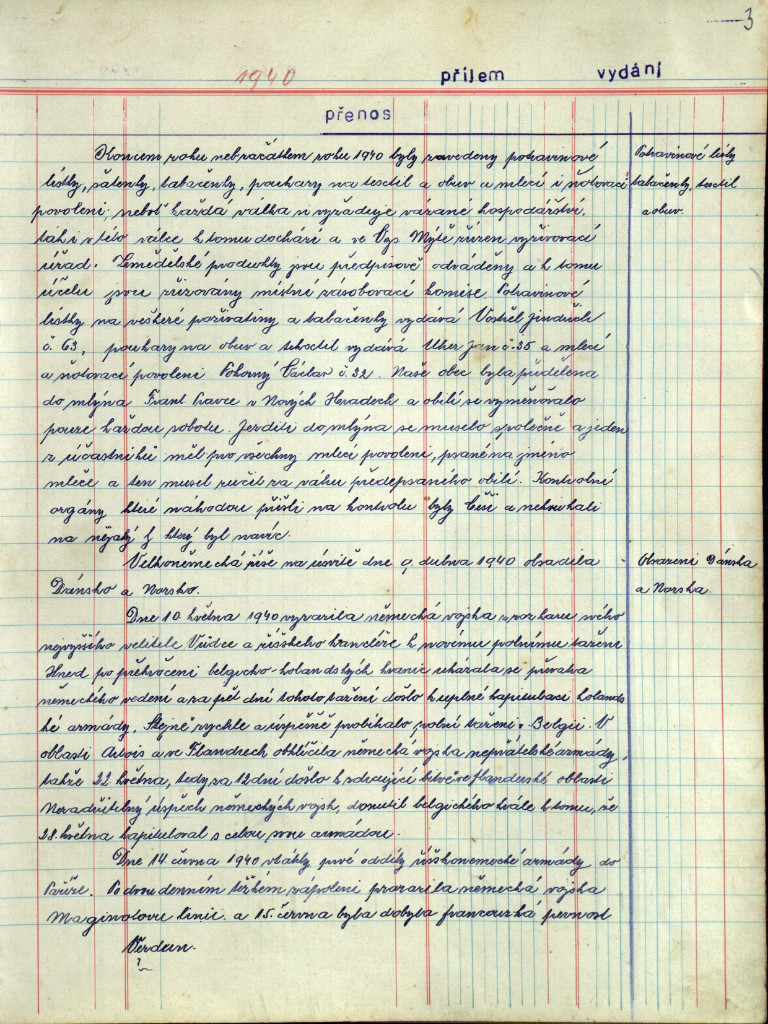 3
1940 příjem vydání
přenos
Koncem roku neb začátkem roku 1940 byly zavedeny potravinové
Potravinové listy
lístky, šatenky, tabačenky, pouhary na textil a obuv a mlecí i šrotovací
tabačenky, textil
povolení, neboť každá válka si vyžaduje vázané hospodářství,
a obuv.
tak i v této válce k tomu dochází a ve Vys. Mýtě zřízen vyživovací
úřad. Zemědělské produkty jsou předpisově odváděny a k tomu
účelu jsou zřizovány místní zásobovací komise. Potravinové
lístky na veškeré poživatiny a tabačenky vydává Vostřel Jindřich
č. 63, pouhary na obuv a tekstil vydává Uher Jan č. 35 a mlecí
a šrotovací povolení Pokorný Václav č. 32. Naše obec byla přidělena
do mlýna Frant. v Nových Hradech a obilí se vyměňovalo
pouze každou sobotu. Jezditi do mlýna se muselo společně a jeden
z účastníků měl pro všechny mlecí povolení, psané na jméno
mleče a ten musel ručit za váhu předepsaného obilí. Kontrolní
orgány které náhodou přišli na kontrolu byly Češi a nekoukali
na nějaký q který byl navíc.
Velkoněmecká říše na úsvitě dne 9. dubna 1940 obsadila
Obsazení Dánska
Dánsko a Norsko.
a Norska.
Dne 10. května 1940 vyrazila německá vojska z rozkazu svého
nejvyššího velitele Vůdce a říšského kancléře k novému polnímu tažení
Hned po překročení belgicko-holandských hranic ukázala se převaha
německého vedení a za pět dní tohoto tažení došlo k úplné kapitulaci holands
ké armády. Stejně rychle a úspěšně probíhalo polní tažení v Belgii. V
oblasti Artois a ve Flandrech obklíčila německá vojska nepřátelské armády,
takže 22 května, tedy za 12 dní došlo k rozhodující bitvě ve flanderské oblasti
Neradržitelný úspěch německých vojsk, donutil belgického krále k tomu, že
28. května kapituloval s celou svou armádou.
Dne 14. června 1940 vtáhly prvé oddíly říšskoněmecké armády do
Paříže. Po dvoudenním těžkém zápolení prorazila německá vojska
Maginotovu linii. a 15. června byla dobyta francouzská pevnost
Verdun.
?